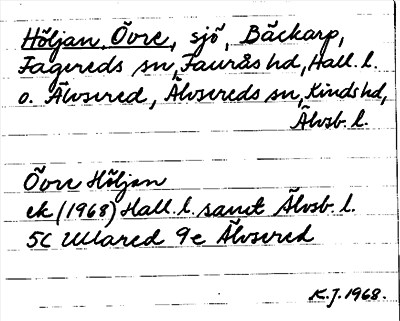 Höljan, Övre, sjö, Bäckarp,
Fagereds sn, Faurås hd, Hall. l.
o. Älvsered, Älvsereds sn, Kinds hd,
Älvsb. l.
Övre Höljan
ek (1968) Hall. l. samt Älvsb. l.
5C Ullared 9e Älvsered
K.J. 1968.